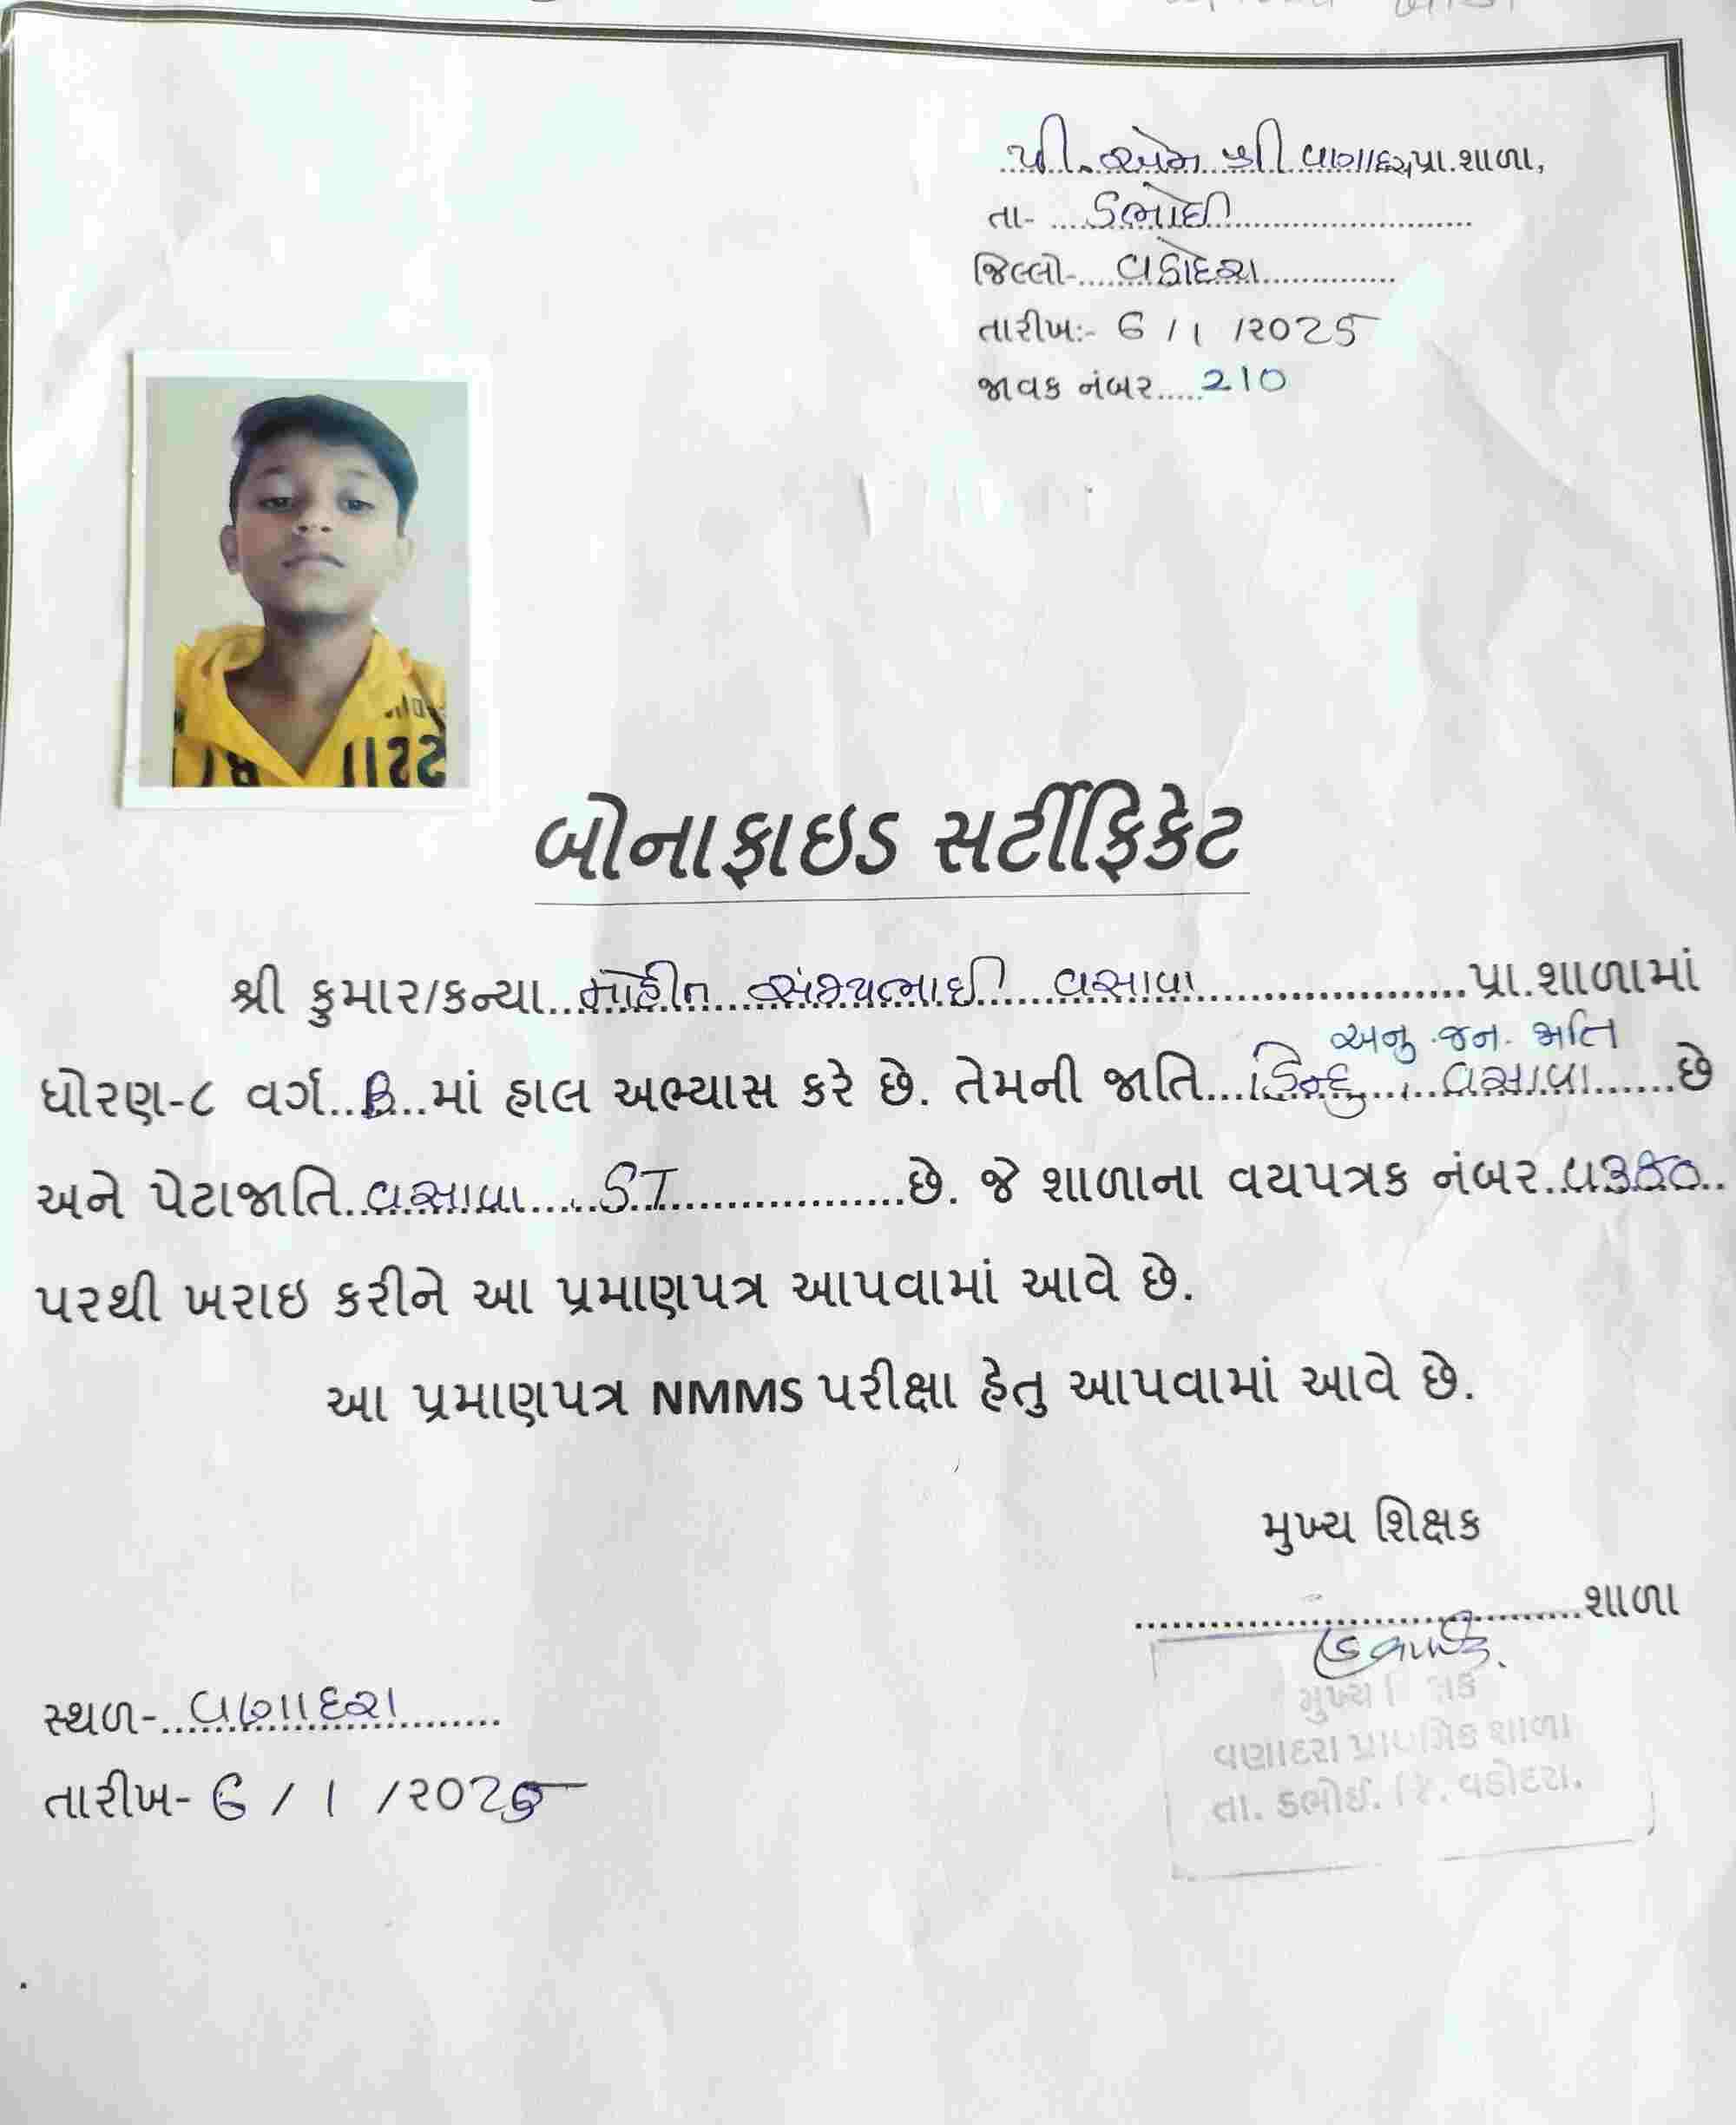 પી. એમ શ્રી વણાદરા પ્રા.શાળા,
તા- ડભોઈ
જિલ્લો- વડોદરા
તારીખ:- 6 / 1 /૨૦25
જાવક નંબર.....210
બોનાફાઇડ સર્ટીફિકેટ
શ્રી કુમાર/કન્યા મોહીત સંજયભાઈ વસાવા પ્રા.શાળામાં
અનુ. જન. જાતિ
ધોરણ-૮ વર્ગ..B...માં હાલ અભ્યાસ કરે છે. તેમની જાતિ...હિન્દુ, વસાવા......છે
અને પેટાજાતિ..વસાવા.....ST..........છે. જે શાળાના વયપત્રક નંબર..
પરથી ખરાઇ કરીને આ પ્રમાણપત્ર આપવામાં આવે છે.
આ પ્રમાણપત્ર NMMS પરીક્ષા હેતુ આપવામાં આવે છે.
મુખ્ય શિક્ષક
..............................શાળા
મુખ્ય
વણાદરા પ્રાથમિક શાળા
તા. ડભોઈ. જિ. વડોદરા.
સ્થળ- વણાદરા
તારીખ- 6 / 1 /૨૦25